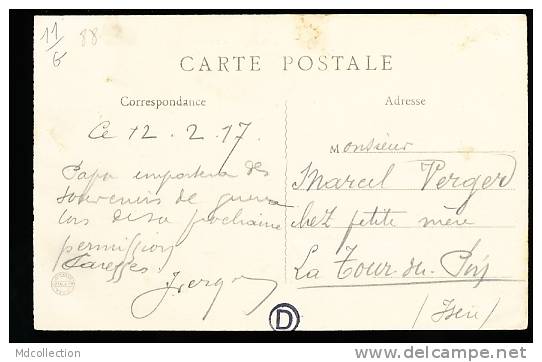 11/6
88
CARTE POSTALE
Correspondance
Adresse
Ce 12.2.17.
Papa emportera des
souvenirs de guerre
lors de sa prochaine
permission
Caresses
Monsieur
Marcel Verger
chez petite mère
La Tour-du-Pin
(Isère)
D
Mdcollection
http://www.delcampe.net